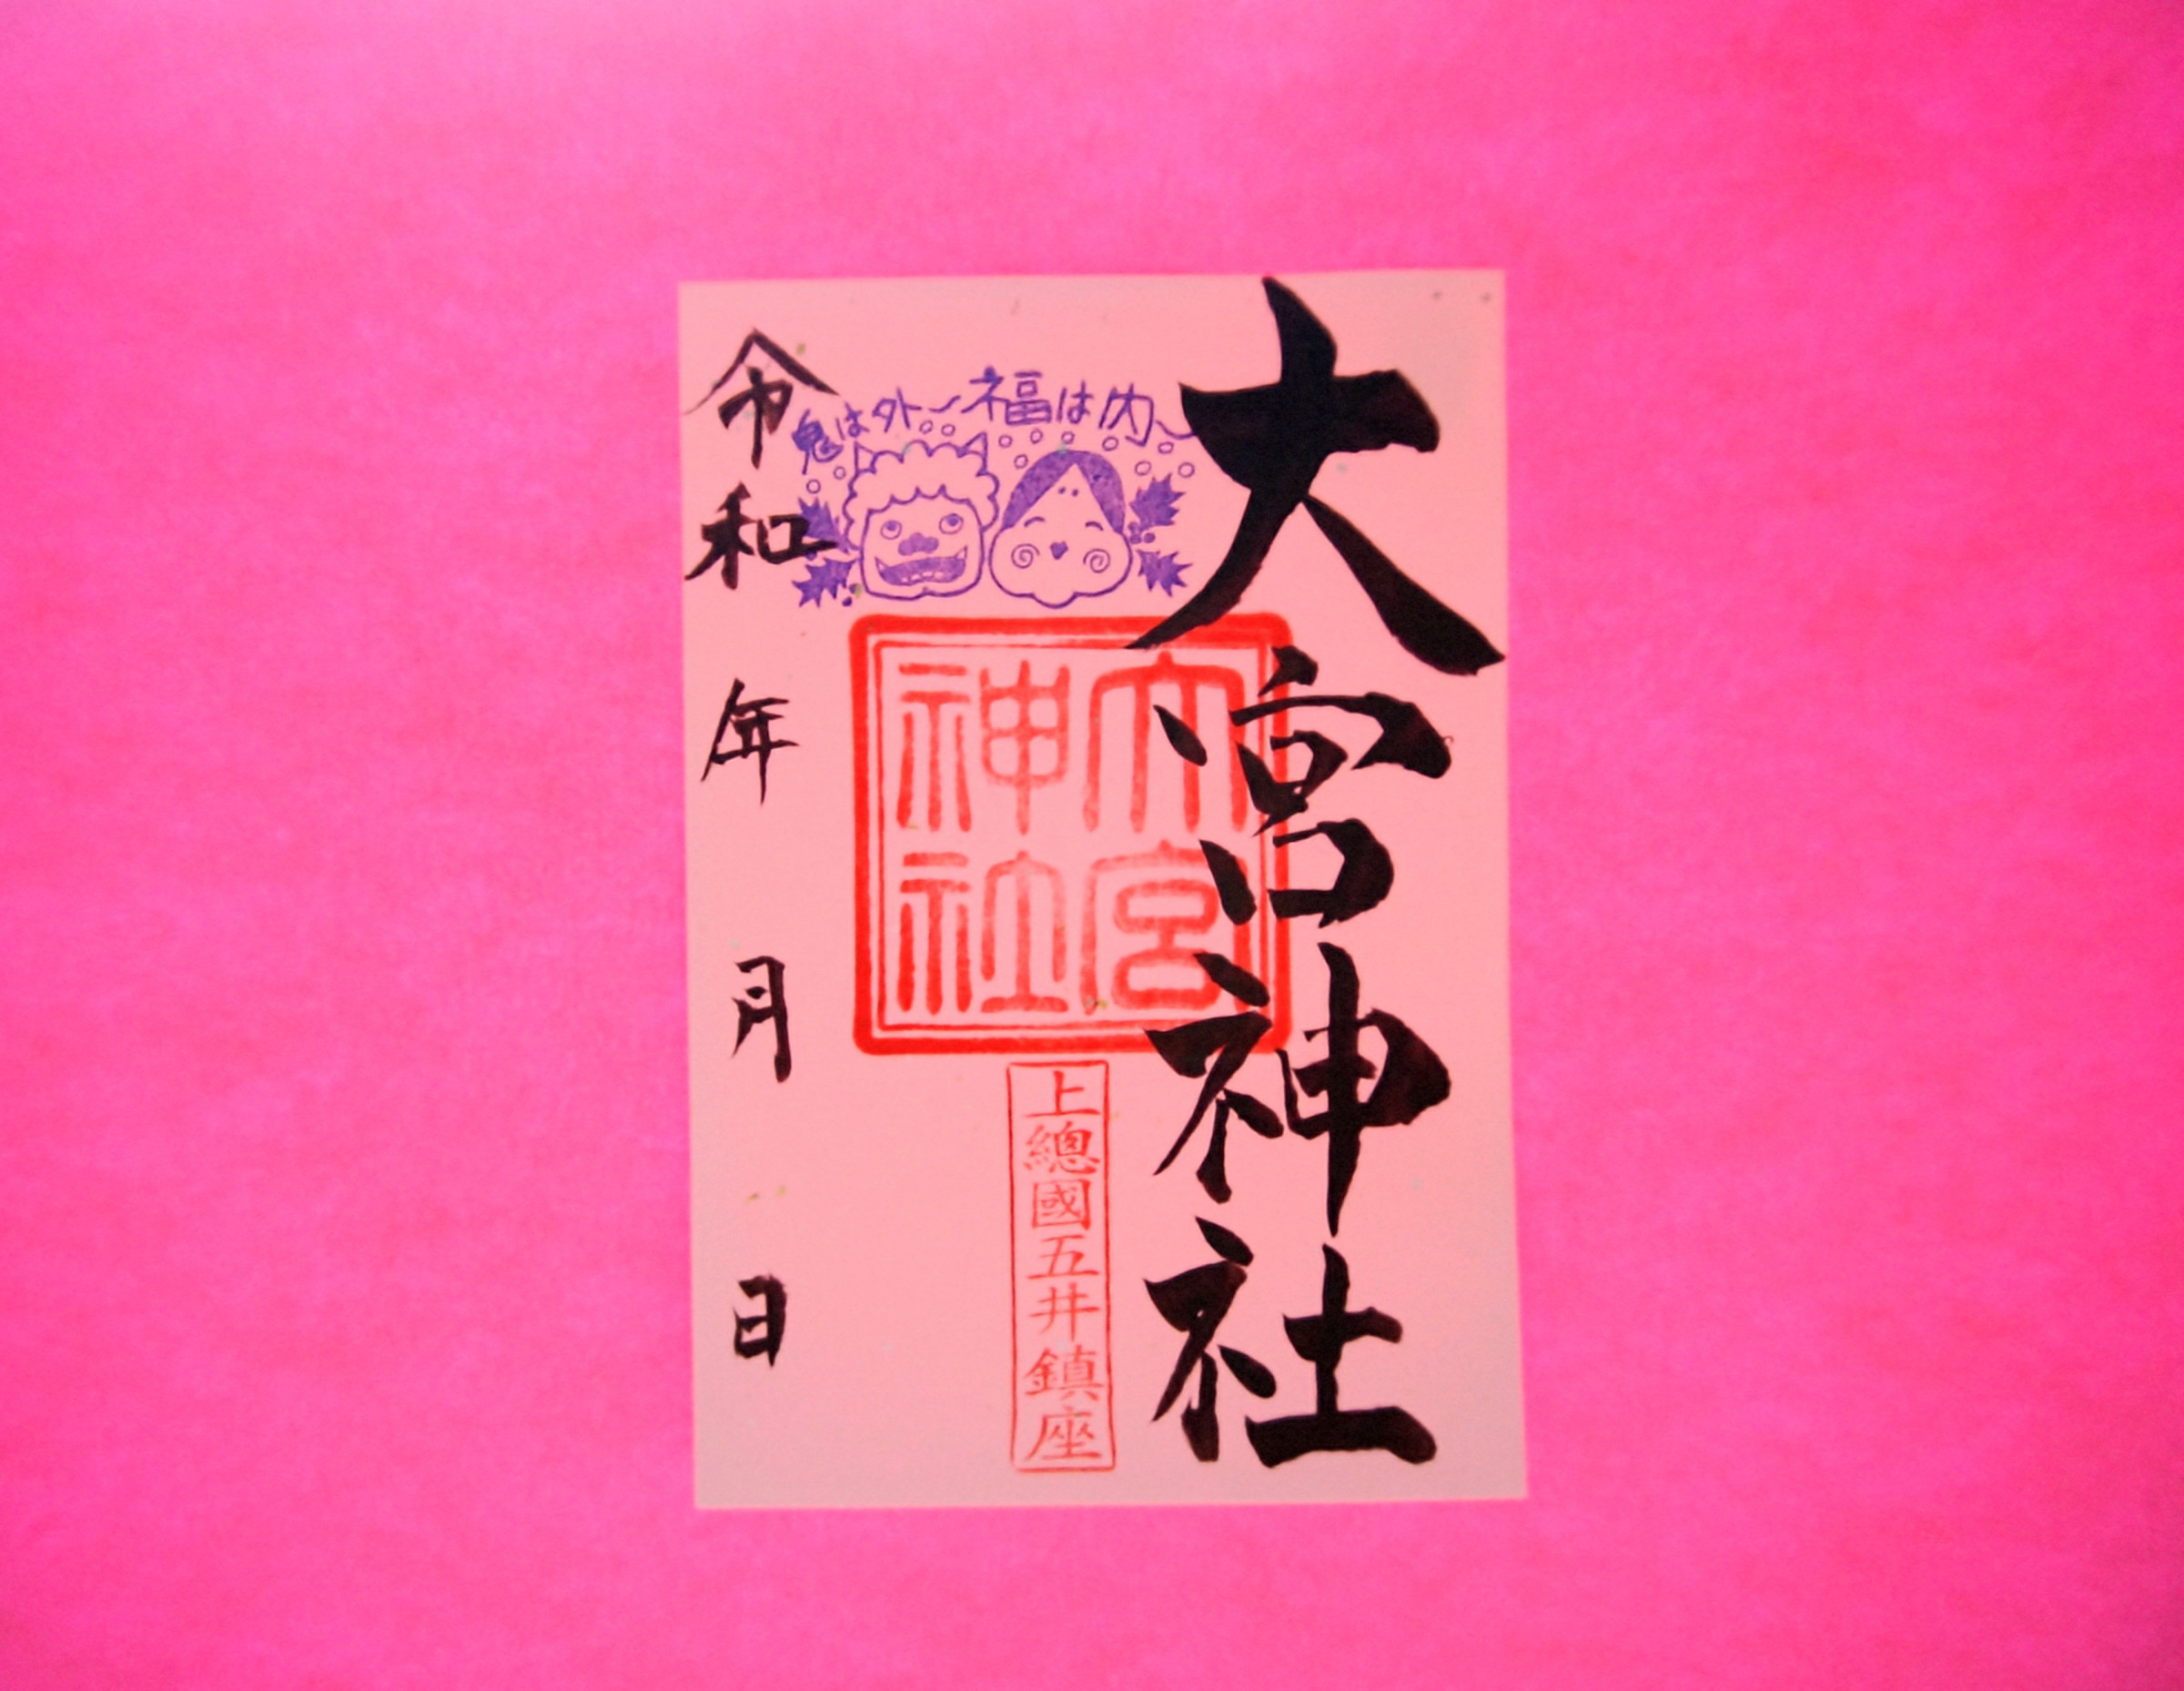 大宮神社
鬼は外〜福は内〜
大宮
神社
上總國五井鎮座
令和 年 月 日